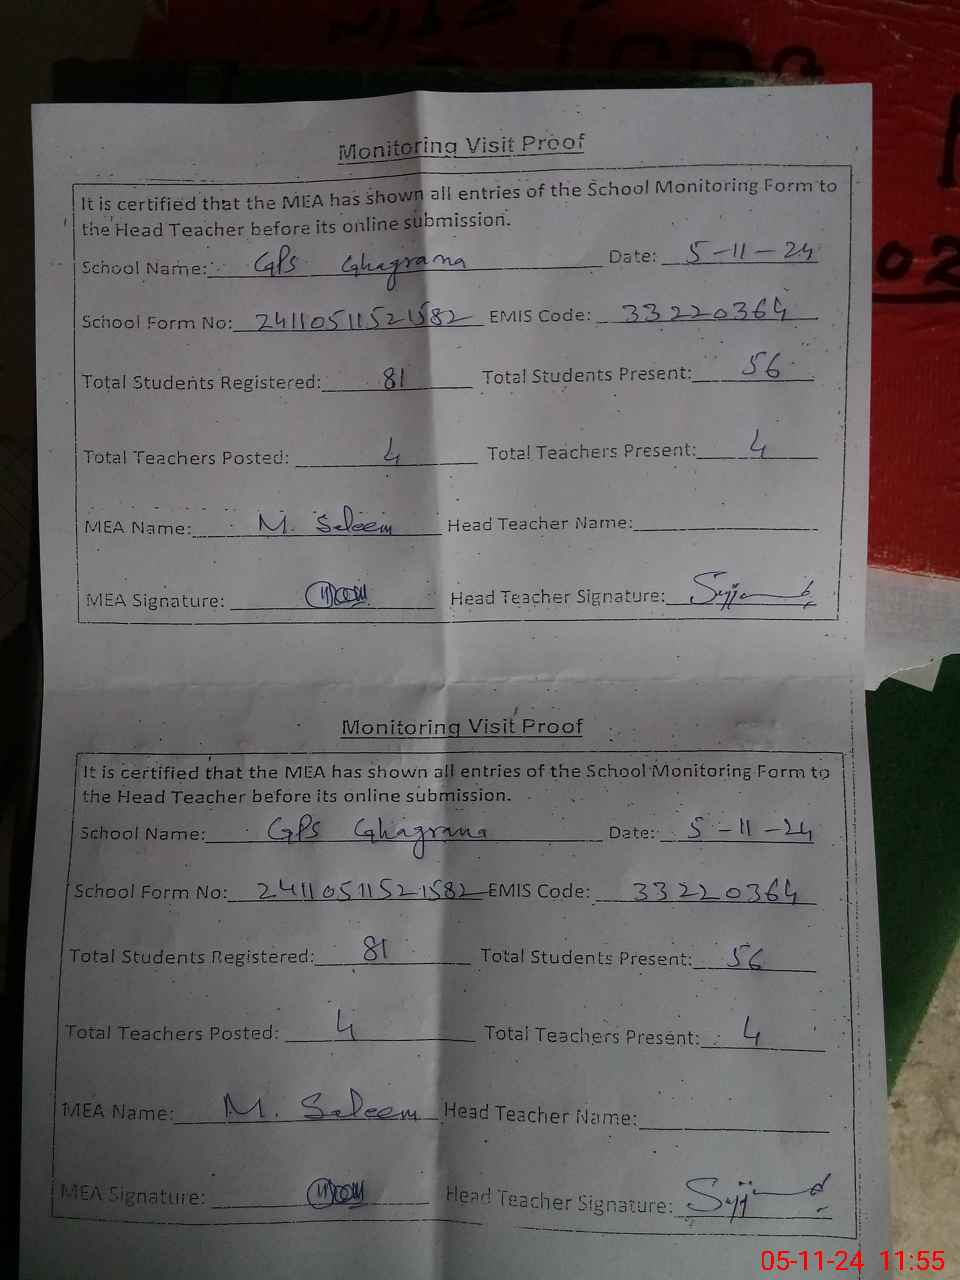 Monitoring Visit Proof
It is certified that the MEA has shown all entries of the School Monitoring Form to
the Head Teacher before its online submission.
School Name: GPS Ghagrana Date: 5-11-24
School Form No: 24110511521582 EMIS Code: 33220364
Total Students Registered: 81 Total Students Present: 56
Total Teachers Posted: 4 Total Teachers Present: 4
MEA Name: M. Saleem Head Teacher Name:
MEA Signature: Head Teacher Signature:
Monitoring Visit Proof
It is certified that the MEA has shown all entries of the School Monitoring Form to
the Head Teacher before its online submission.
School Name: GPS Ghagrana Date: 5-11-24
School Form No: 24110511521582 EMIS Code: 33220364
Total Students Registered: 81 Total Students Present: 56
Total Teachers Posted: 4 Total Teachers Present: 4
MEA Name: M. Saleem Head Teacher Name:
MEA Signature: Head Teacher Signature:
05-11-24 11:55